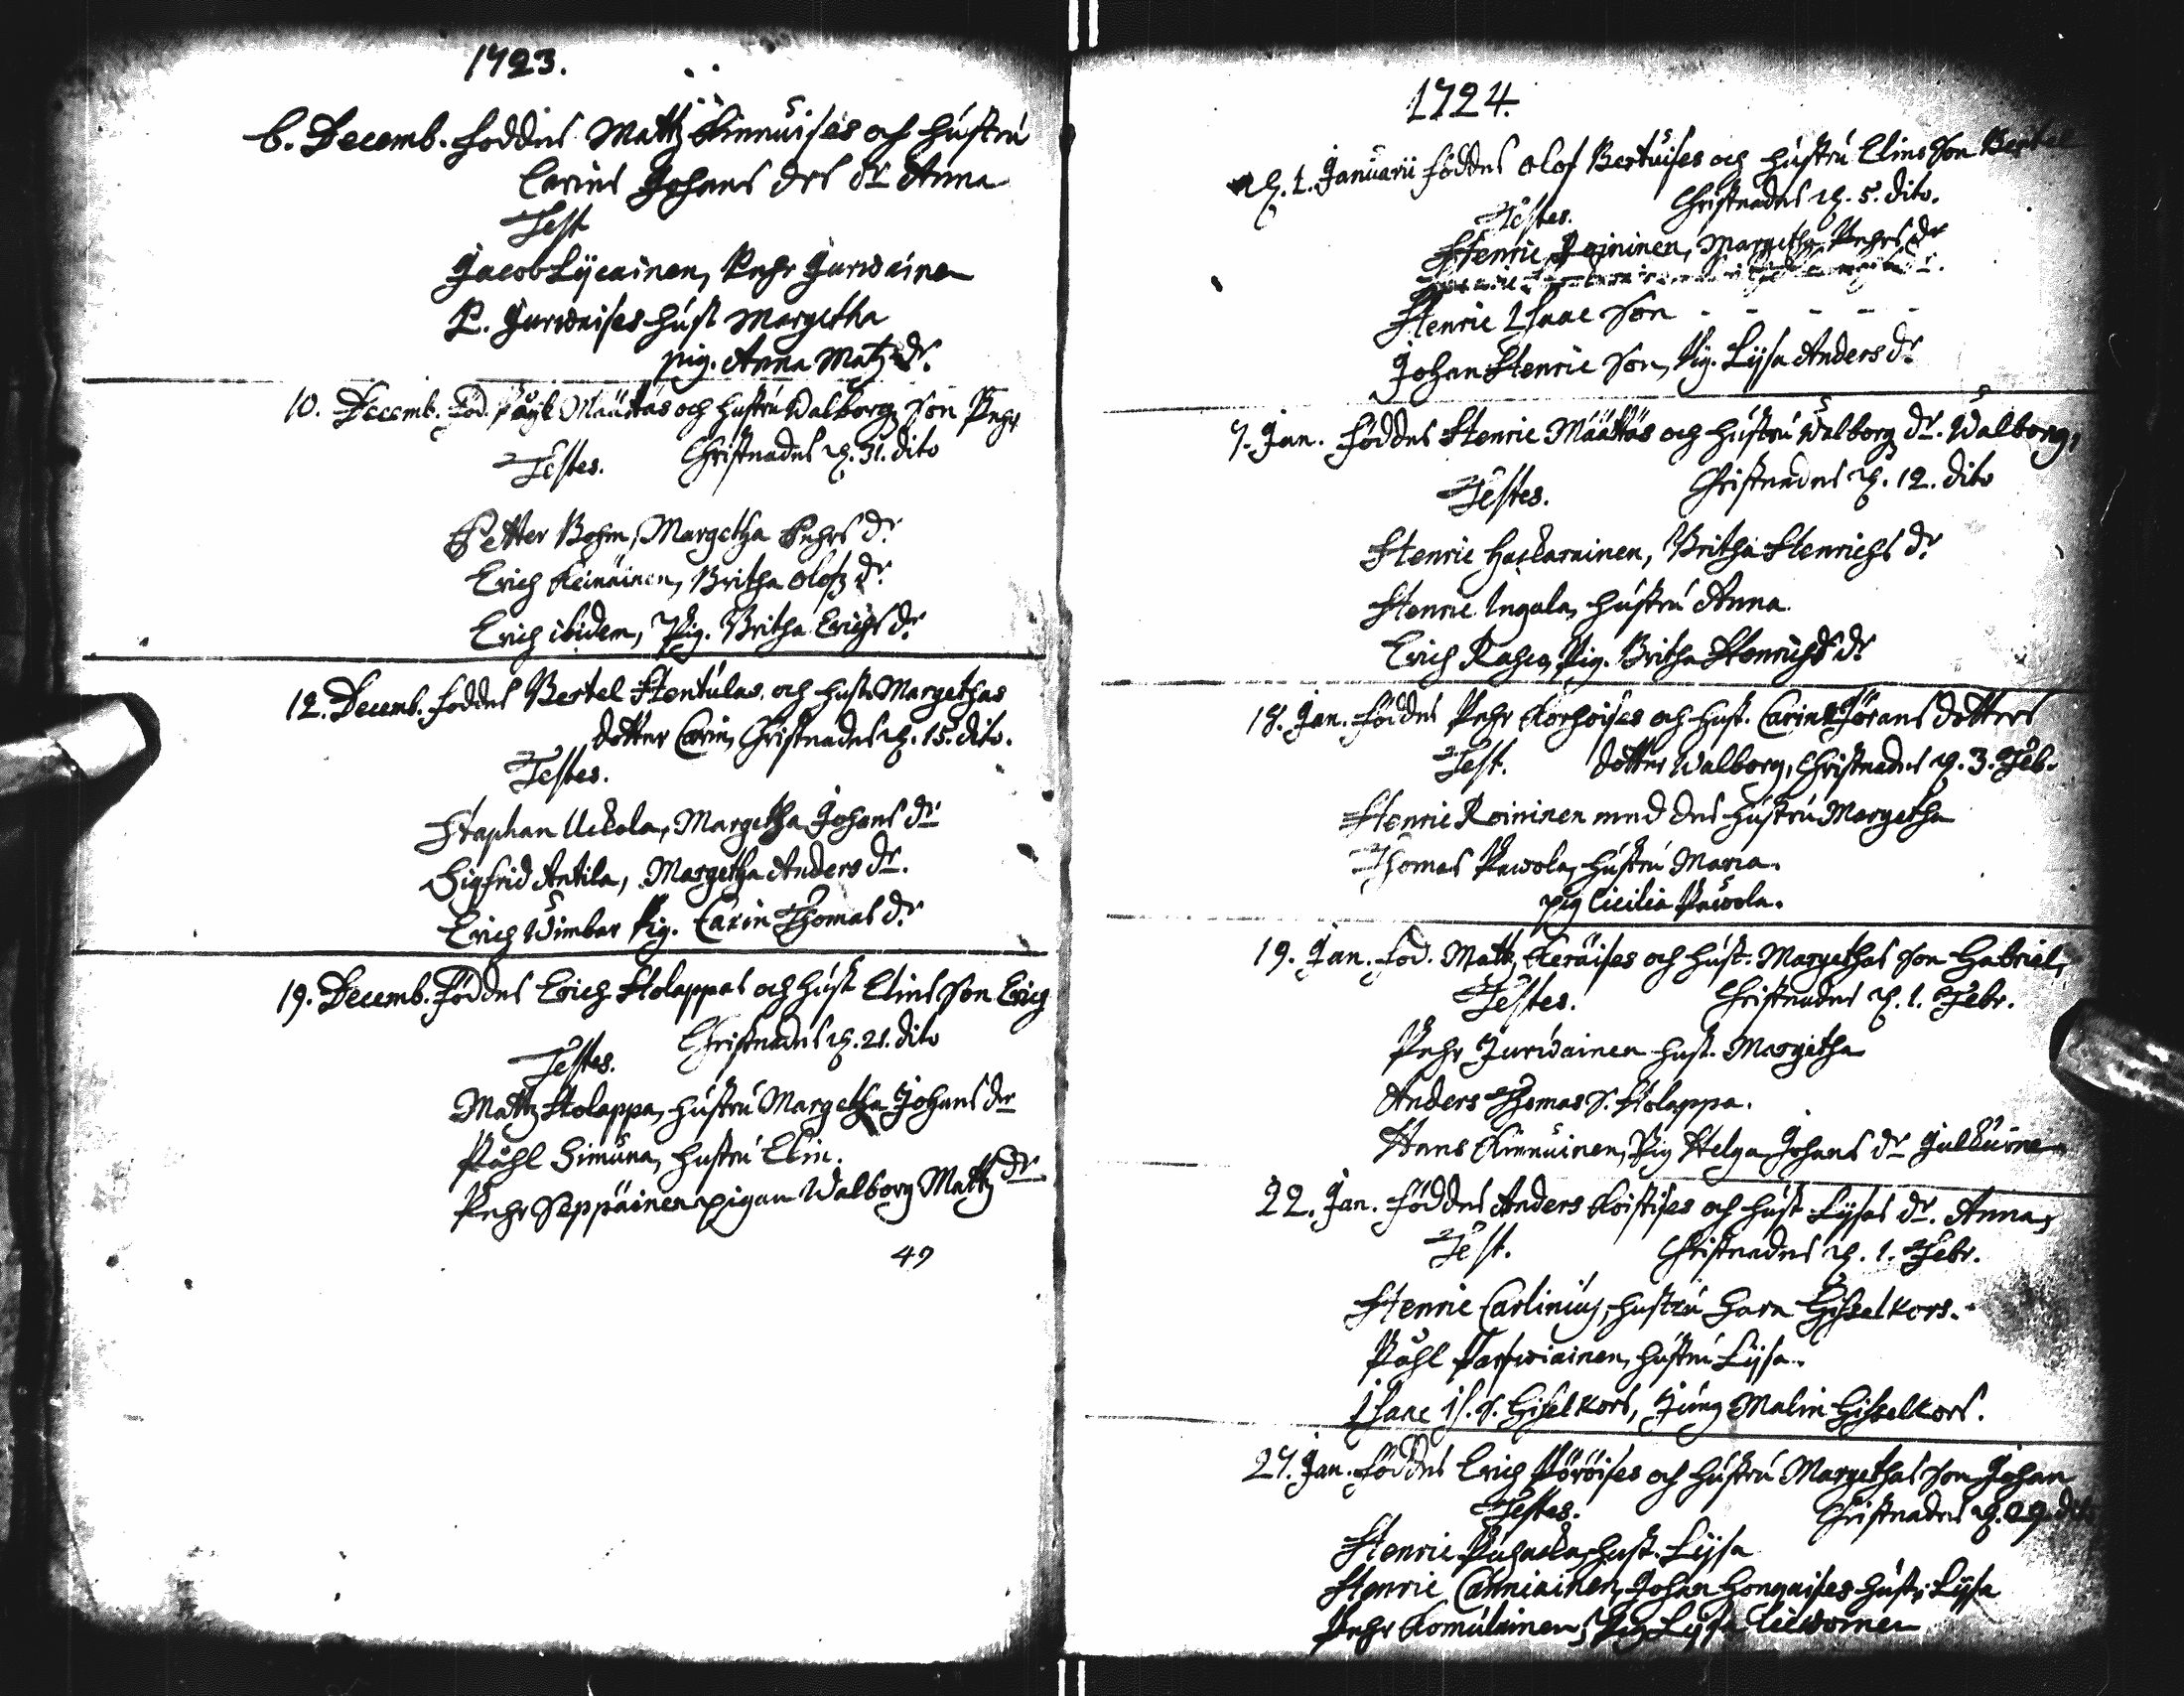 1723.
6. Decemb. foddes Mattz Kinnuises och hustru
Carins Johans drs dr Anna
Test
Jacob Lycainen, Pehr Jurwainen
P. Jurwaises hust Margetha
pig. Anna Matz dr.
10. Decemb. Föd. Måttas och hustru Walborgz son Pehr
Testes. Christnades d. 31. dito
Petter Bohm, Margetha Pehrs dr
Erich Keinäinen, Britha Olofz dr
Erich ibidem, Pig. Britha Erichs dr
12. Decemb. foddes Bertel Hentulas och hust. Margethas
dotter Carin, Christnades d. 15. dito.
Testes.
Staphan Uckola, Margetha Johans dr
Sigfrid Antila, Margetha Anders dr.
Erich Wimbar Pig. Carin Thomas dr
19. Decemb. Föddes Erich Holappas och hust Elins son Erich
Christnades d. 21. dito
Testes.
Mattz Holappa, hustru Margetha Johans dr
Påhl Simuna, hustru Elin.
Pehr Seppäinen pigan Walborg Mattz dr
49
1724.
d. 1. Januarii föddes Olof Bertuises och hustru Elins son Bertel
Testes. Christnades d. 5. dito.
Henric Roininen, Margetha Pehrs dr
Henric Isaac son - - - - -
Johan Henric son, Pig. Lysa Anders dr
7. Jan. föddes Henric Määttäs och hustru Walborg dr. Walborg,
Testes. Christnades d. 12. dito
Henric Hackarainen, Britha Henrichs dr
Henric Ingala, hustru Anna
Erich Rahco, Pig. Britha Henrichs dr
18. Jan. föddes Pehr Korhoises och hust. Carins Jörans dotters
Test. dotter Walborg, Christnades d. 3. Feb.
Henric Roininen med des hustru Margetha
Thomas Pawola, hustru Maria.
pig Cicilia Pawola.
19. Jan. föd. Mattz Keräises och hust. Margethas son Gabriel,
Testes. Christnades d. 1. Febr.
Pehr Jurwainen hust. Margetha
Anders Thomas S. Holappa.
Hans Kinnuinen, Pig Helga Johans dr Julkuinen
22. Jan. föddes Anders Koistises och hust Lysas dr. Anna,
Test. Christnades d. 1. Febr.
Henric Carlinius, hustru Gisselkors.
Påhl Parwiainen, hustru Lysa.
Isaac Is. S. Gisselkors, Jung Malin Gisselkors.
27. Jan. föddes Erich Pöröises och hustru Margethas son Johan
Testes. Christnades d. 29. dito
Henric Puhacka, hust. Lysa
Henric Canniainen, Johan Hongaises hust. Lysa
Pehr Komulainen, Pig Lysa